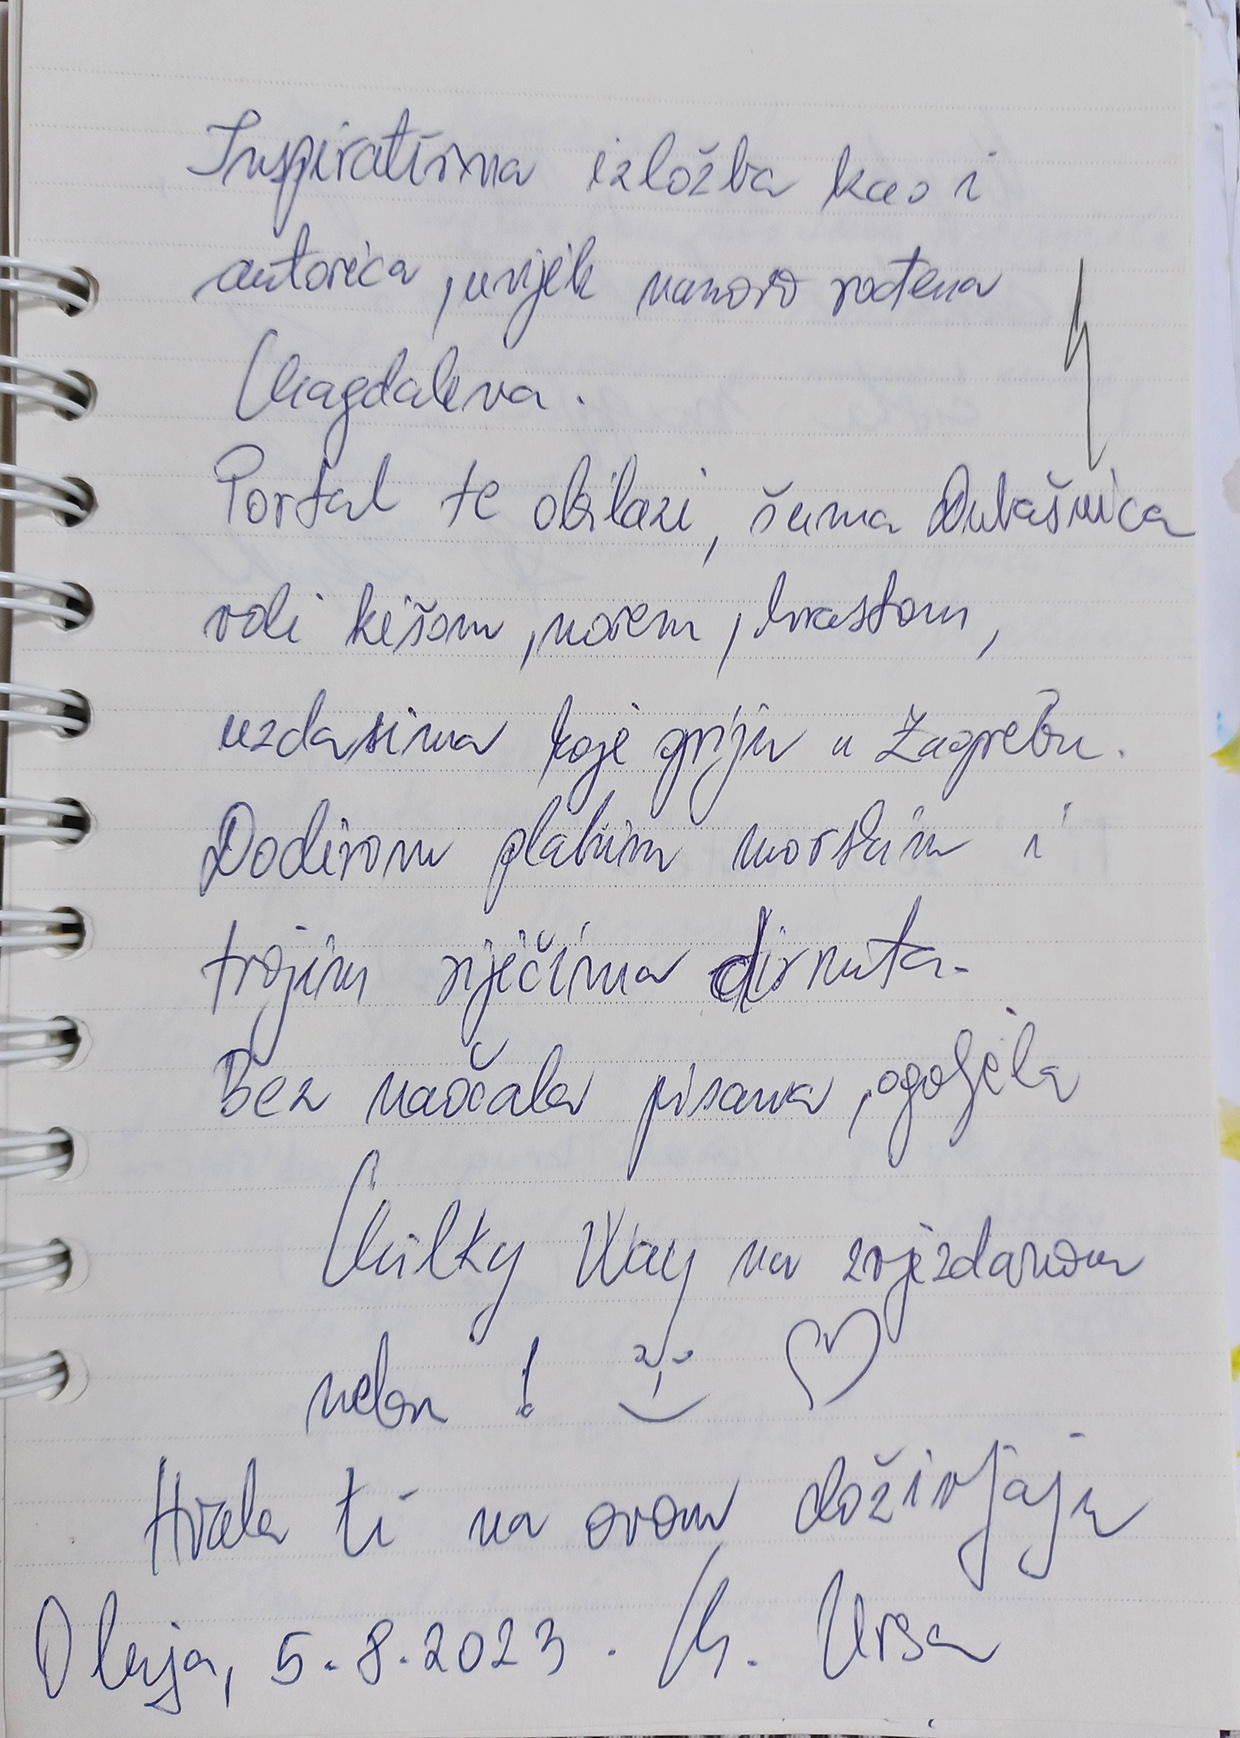 Inspirativna izložba kao i
autorica, uvijek nanovo rođena
Magdalena.
Portal te obilazi, šuma Dubašnica
voli kišom, morem, hrastom,
uzdasima koje griju u Zagrebu.
Dodirom plavim morskim i
tvojim riječima dirnuta.
Bez naočala pisana, ogoljela
Milky Way na zvjezdanom
nebu!
Hvala ti na ovom doživljaju
Oluja, 5.8.2023. M. Ursa